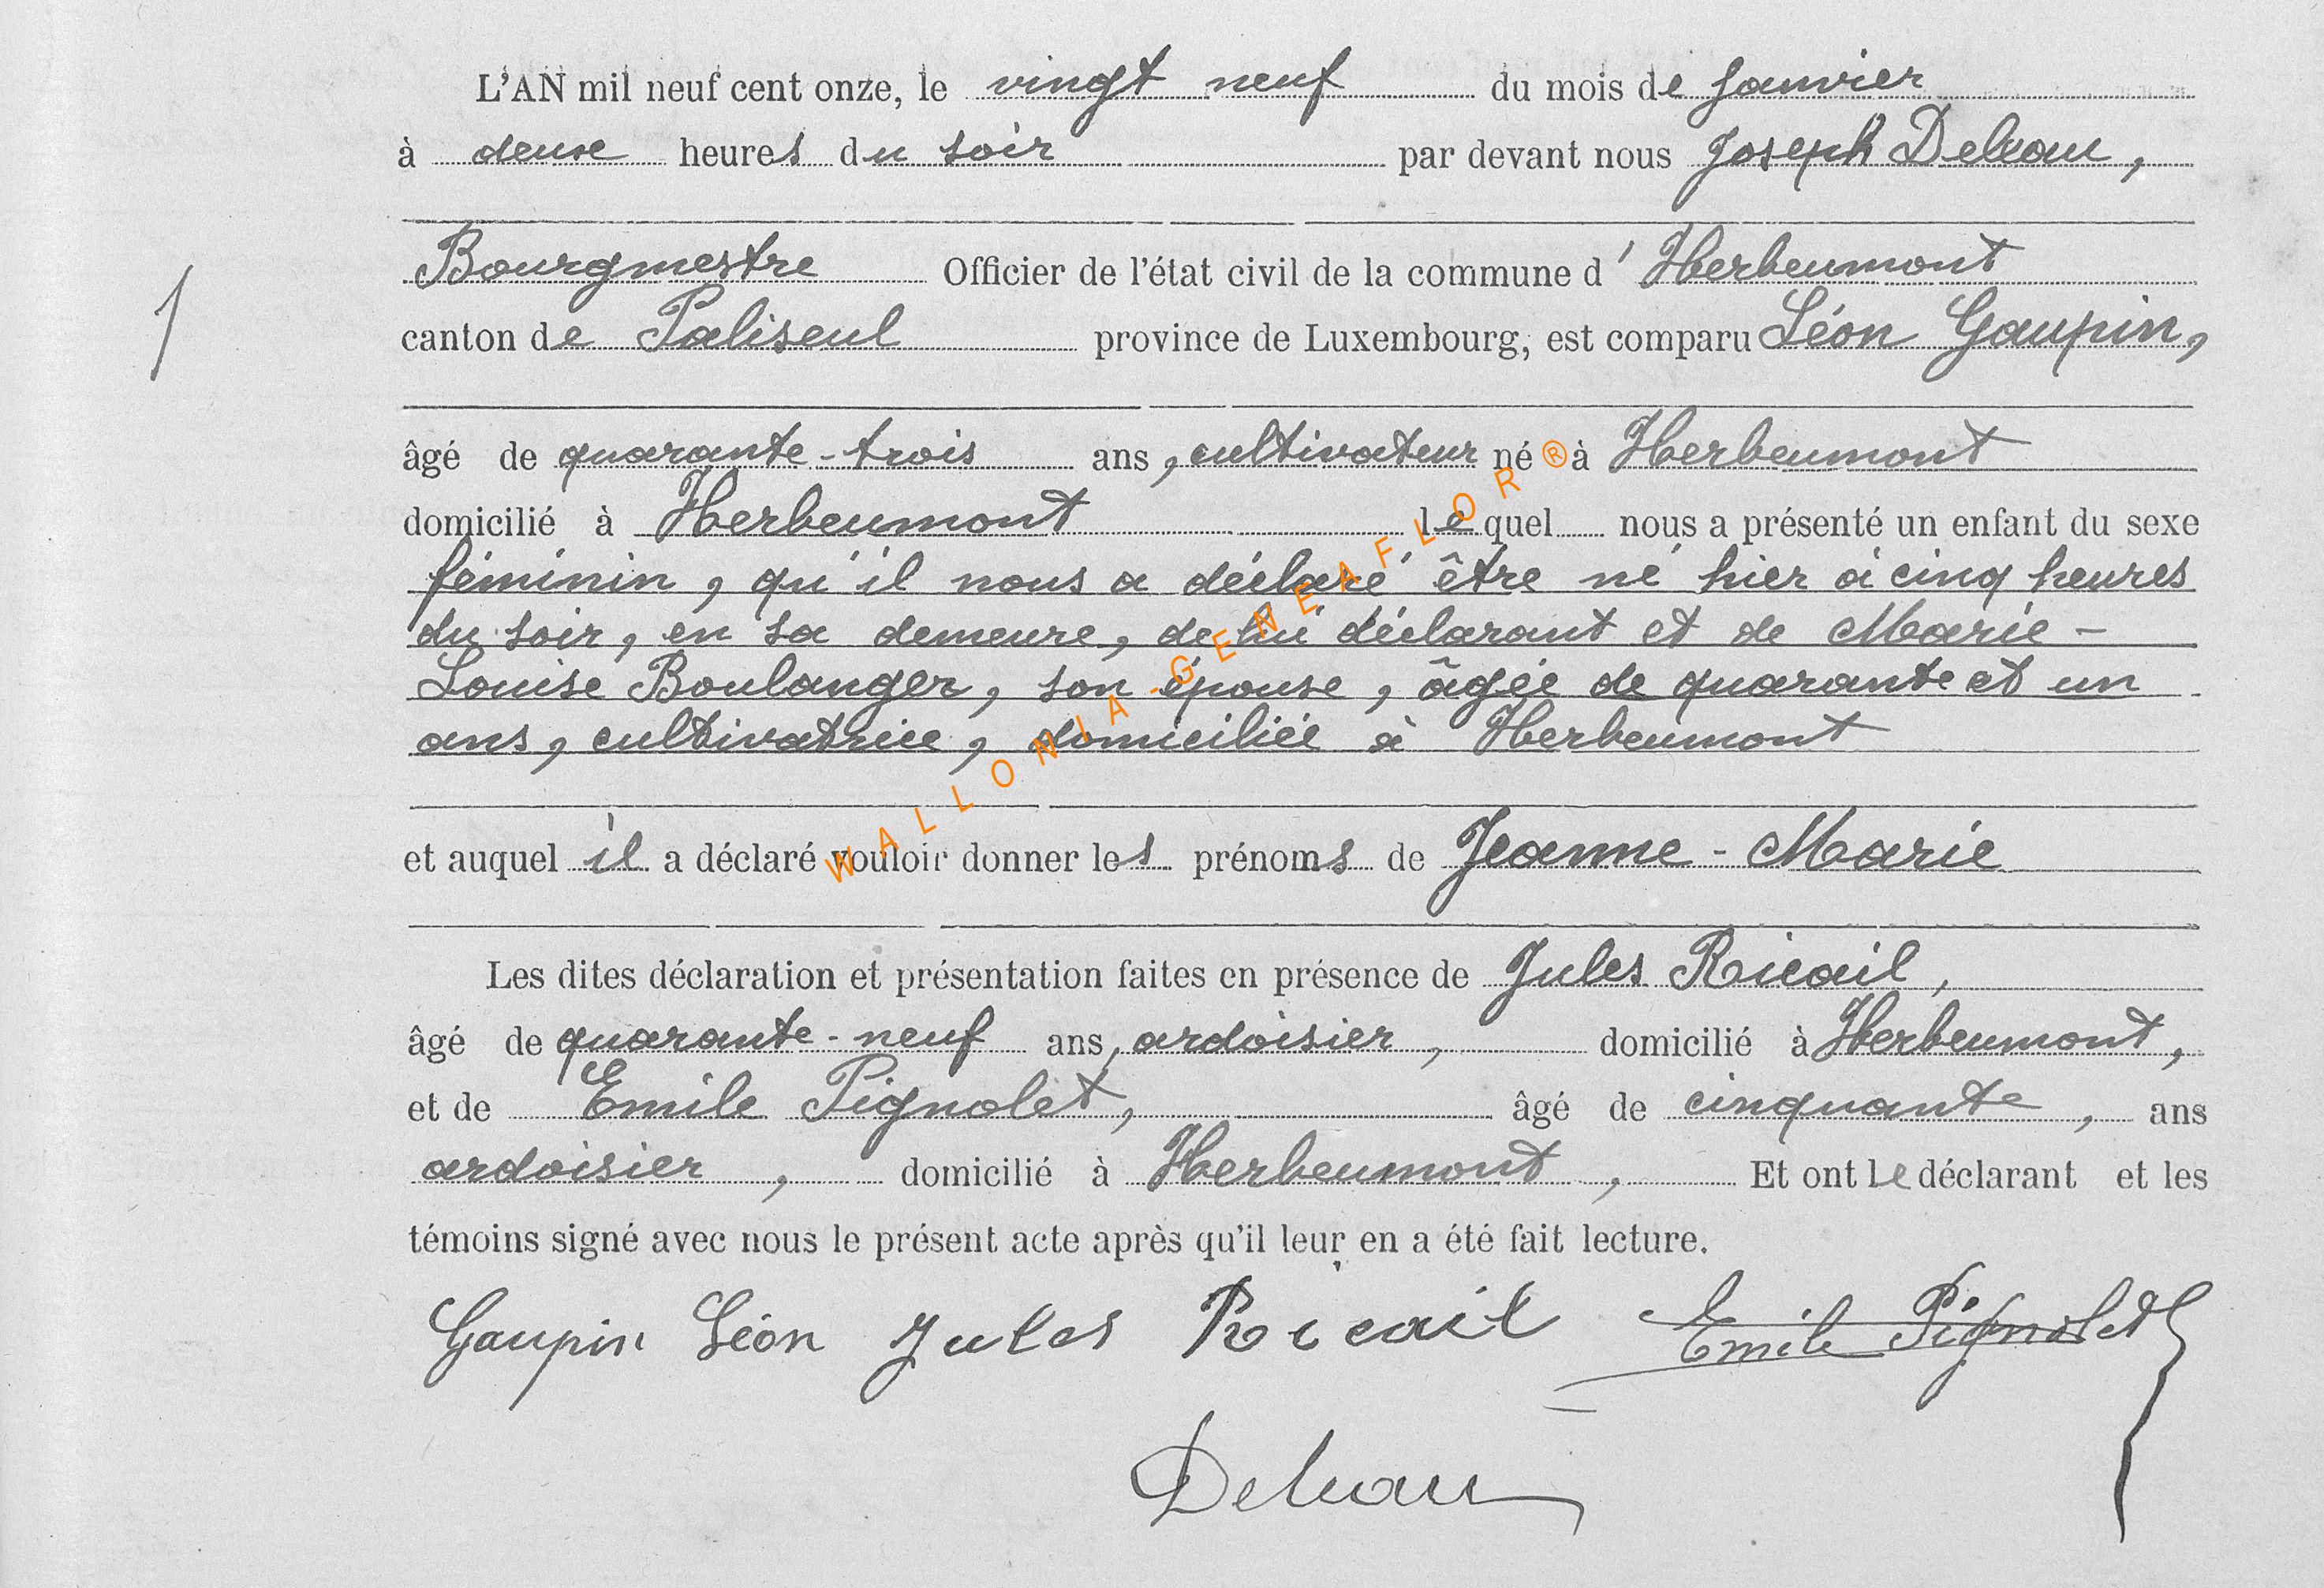 L'AN mil neuf cent onze, le vingt neuf du mois de Janvier
à deux heures du soir par devant nous Joseph Deleau,
Bourgmestre Officier de l'état civil de la commune d'Herbeumont
1
canton de Paliseul province de Luxembourg, est comparu Léon Gaupin,
âgé de quarante-trois ans, cultivateur né à Herbeumont
domicilié à Herbeumont lequel nous a présenté un enfant du sexe
féminin, qu'il nous a déclaré être né hier à cinq heures
du soir, en sa demeure, de lui déclarant et de Marie-
Louise Boulanger, son épouse, âgée de quarante et un
ans, cultivatrice, domiciliée à Herbeumont
et auquel il a déclaré vouloir donner les prénoms de Jeanne-Marie
Les dites déclaration et présentation faites en présence de Jules Ricail,
âgé de quarante-neuf ans, ardoisier, domicilié à Herbeumont,
et de Emile Pignolet, âgé de cinquante, ans
ardoisier, domicilié à Herbeumont, Et ont le déclarant et les
témoins signé avec nous le présent acte après qu'il leur en a été fait lecture.
Gaupin Léon Jules Ricail Emile Pignolet
Deleau
WALLONIA-GENEAFLOR®